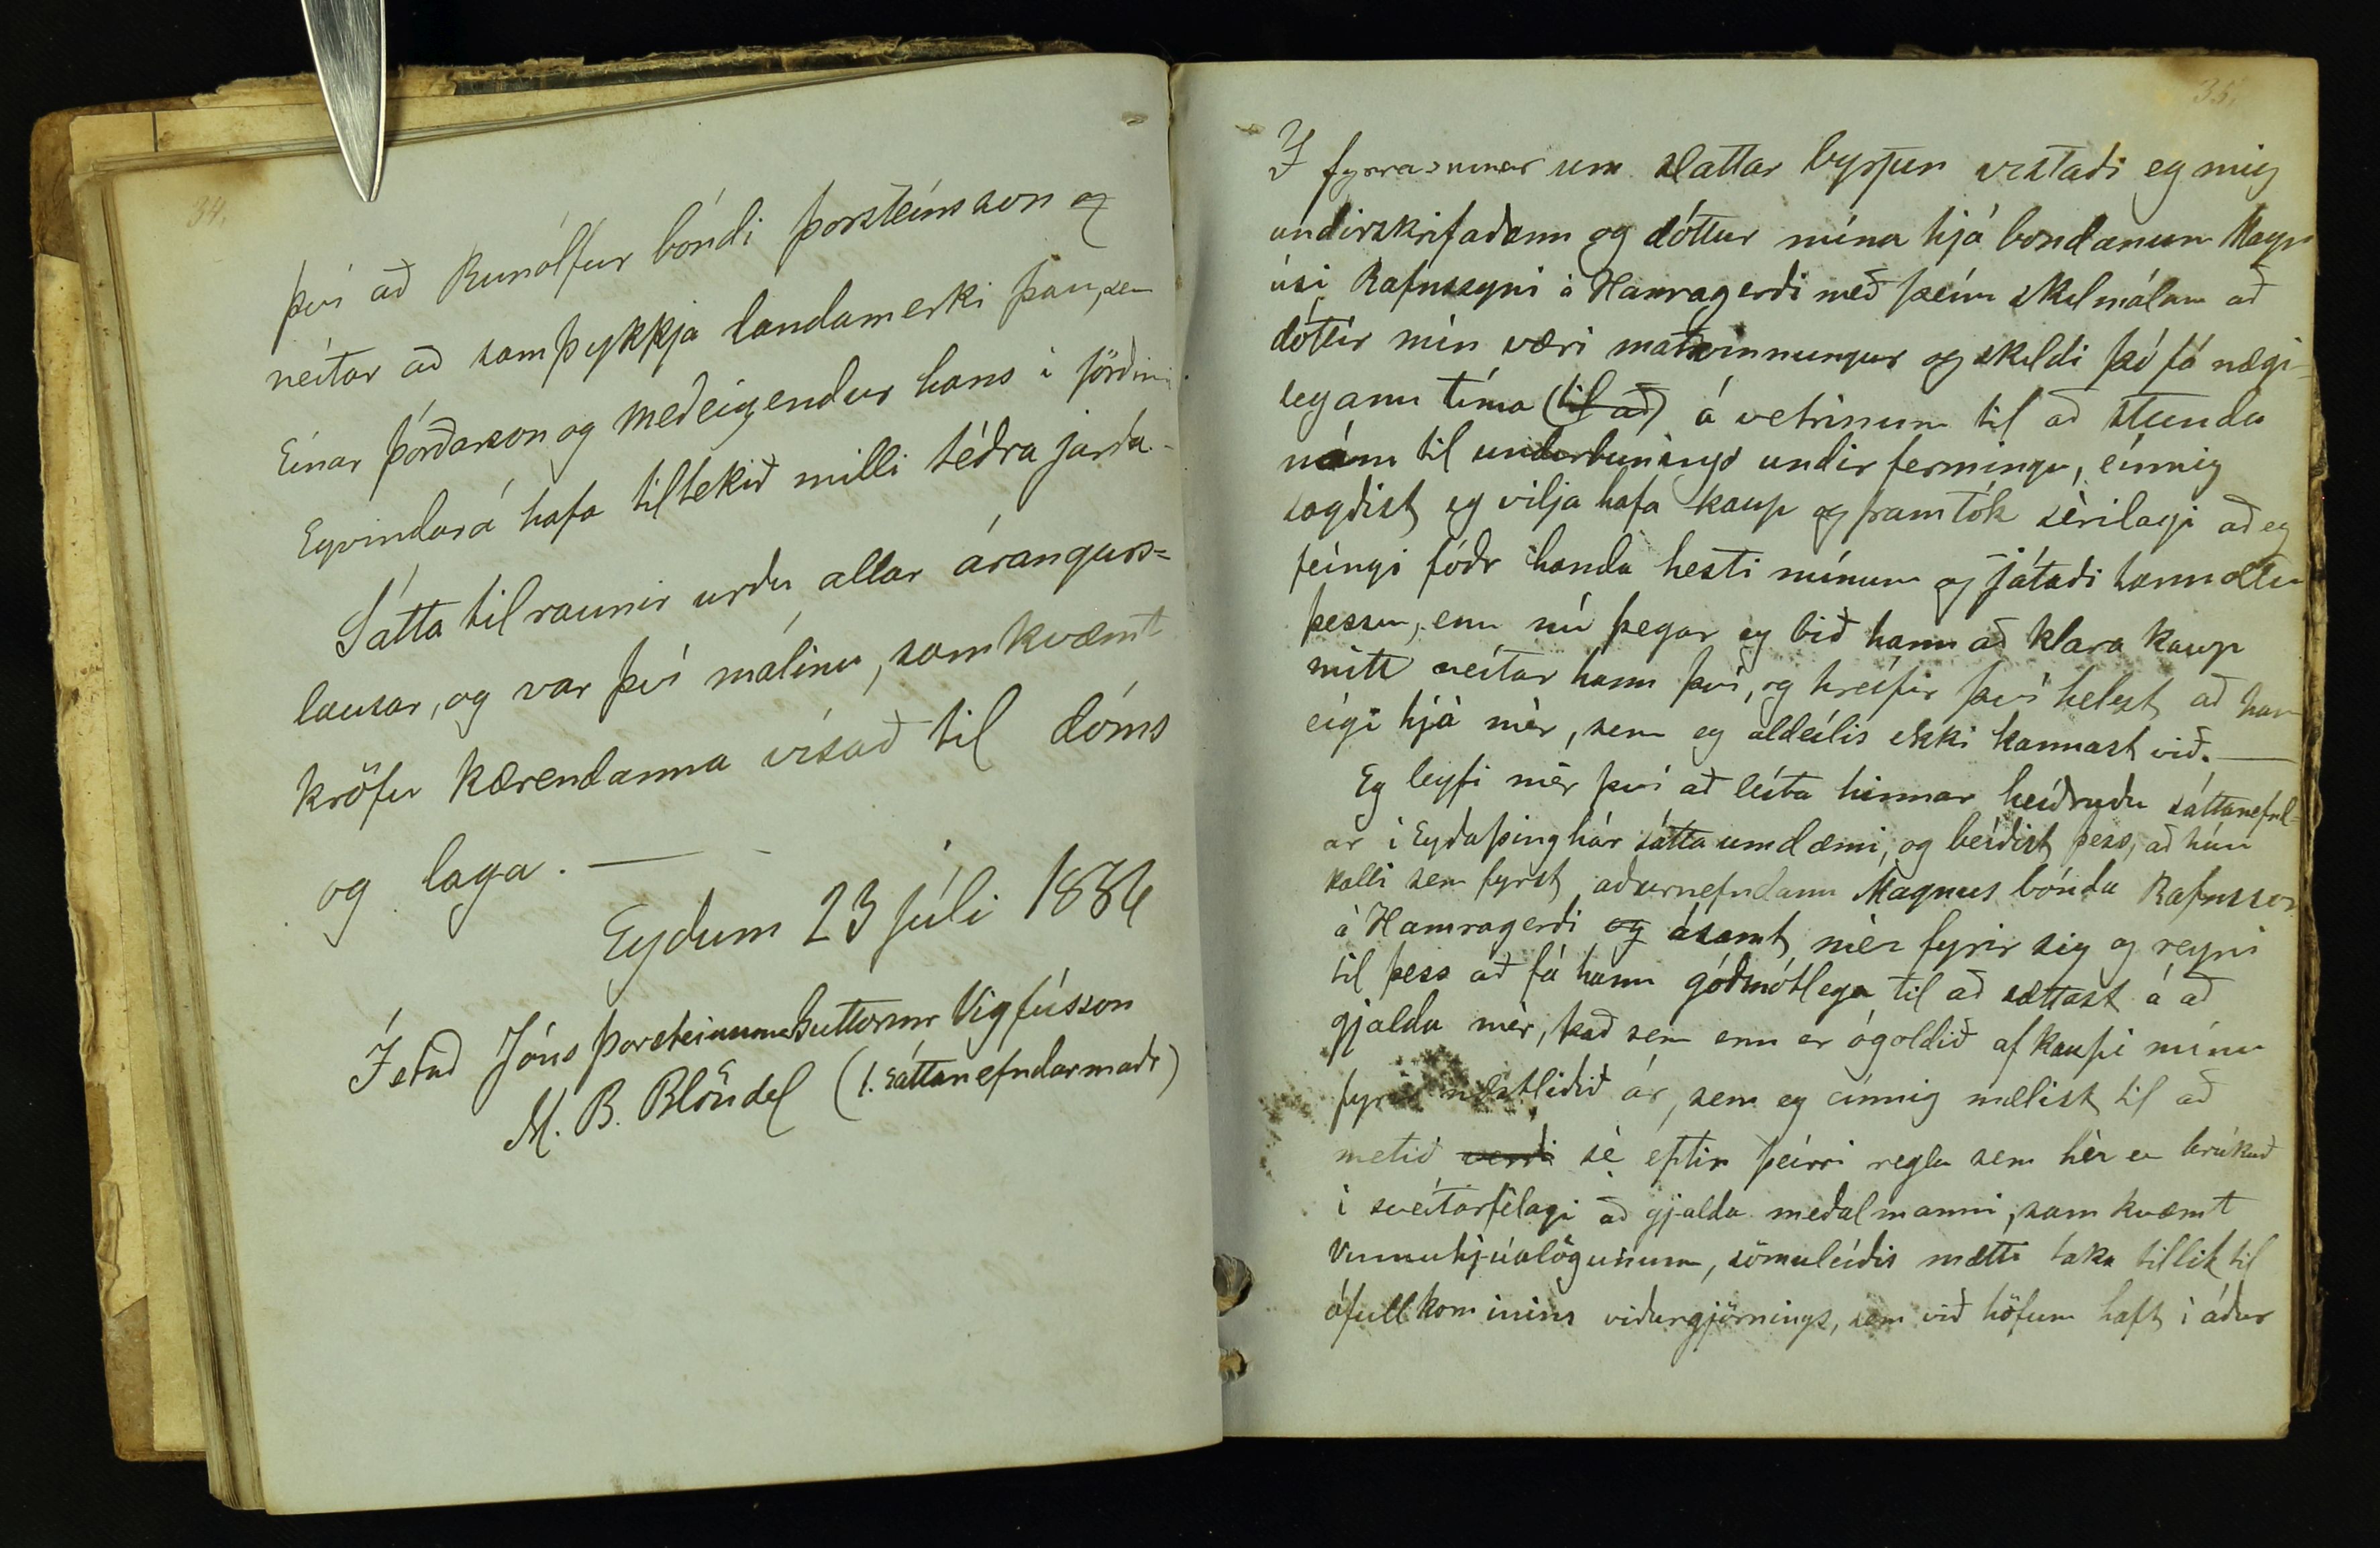 34.
því að Runólfur bóndi Þorsteinsson og
neitar að samþykkja landamerki þau, sem
Einar Þórðarson og meðeigendur hans í jörðinni
Eyvindará hafa tiltekið milli téðra jarða-
Sátta tilraunir urðu allar árangurs=
lausar, og var því málinu, samkvæmt
kröfu kærendanna vísað til dóms
og laga. —
Eydum 23 júlí 1884
Í stað Jóns Þorsteinssonar Guttormr Vigfússon
M. B. Blöndal (1. sáttanefndarmaðr)
35.
Í fyrra sumar um sláttar byrjun vistaði eg mig
undirskrifaðann og dóttur mína hjá bóndanum Magn
úsi Rafnssyni á Hamragerði með þeim skilmálum að
dóttir mín væri matvinnungur og skildi þó fá nægi-
legann tíma (til að) á vetrinum til að stunda
nám til undirbúnings undir fermingu, einnig
sagðist eg vilja hafa kaup og framtók sérílagi að eg
feingi fóðr handa hesti mínum og játaði hann öllu
þessu, enn nú þegar eg bið hann að klára kaup
mitt neitar hann því, og hreifir því helst að hann
eigi hjá mér, sem eg aldeilis ekki kannast við. —
Eg leyfi mér því að leita hinnar heiðruðu sáttanefnd=
ar í Eyðaþinghár sátta umdæmi, og beiðist þess, að hún
kalli sem fyrst aðurnefndann Magnus bónda Rafnsson
á Hamragerði og ásamt mér fyrir sig og reyni
til þess að fá hann góðmótlega til að sættast á að
gjalda mér, það sem enn er ógoldið af kaupi mínu
fyrir næstliðið ár, sem eg einnig mælist til að
metið verði sé eptir þeirri reglu sem hér er brúkuð
í sveitarfélagi að gjalda meðalmanni, samkvæmt
Vinnuhjúalögunum, sömuleiðis mætti taka tillit til
ófullkomins viðurgjörnings, sem við höfum haft í áður